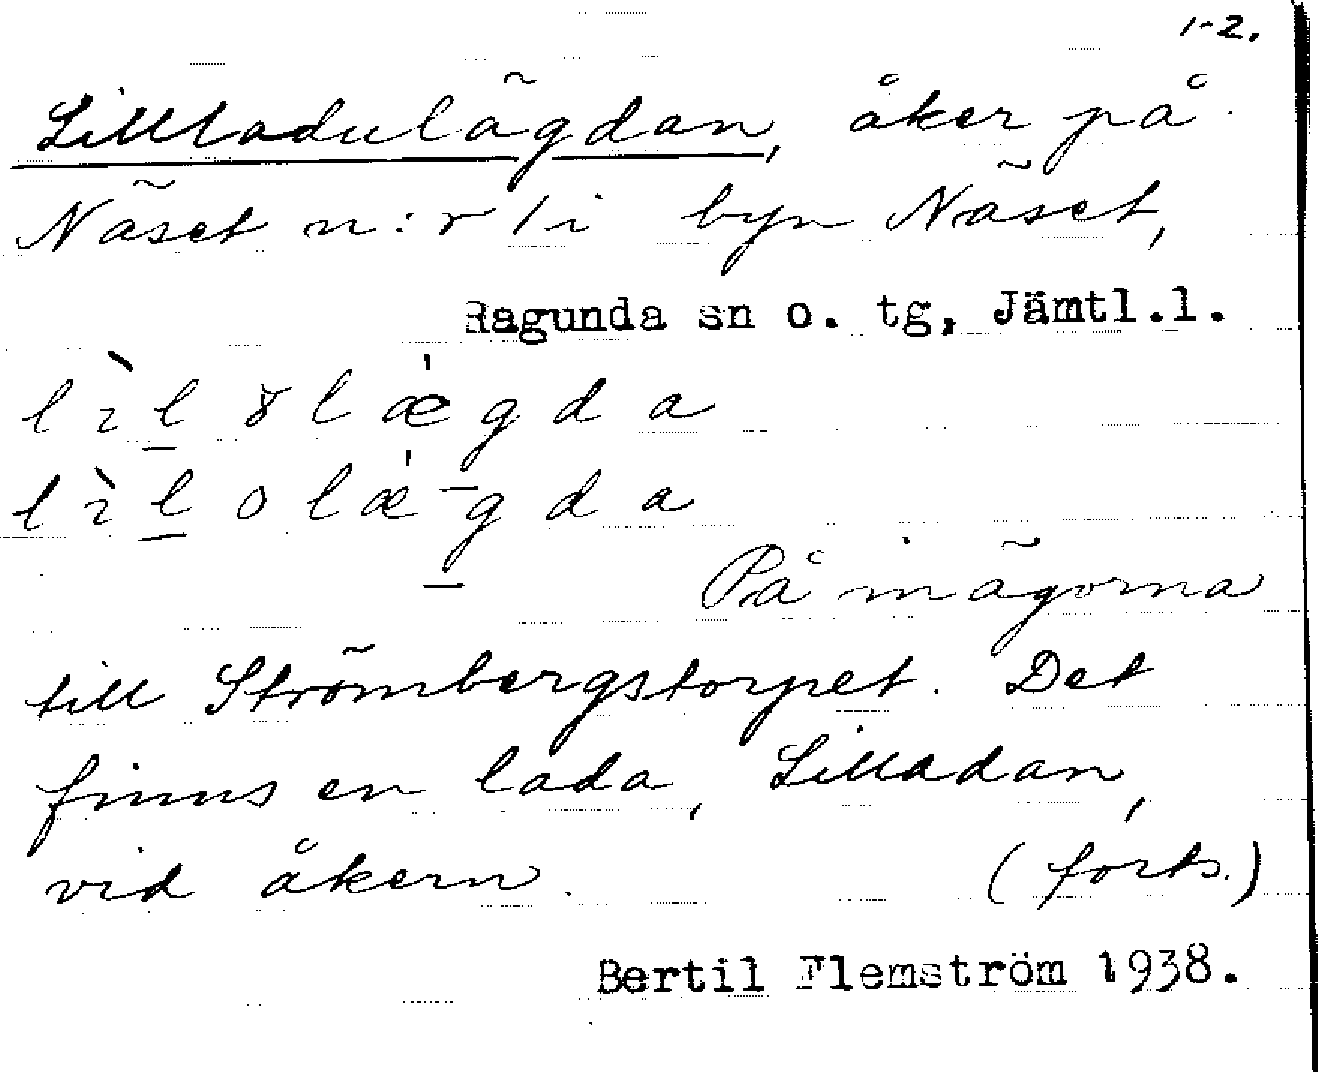 1-2.
Lillladulägdan, åker på
Näset n:r 1 i byn Näset,
Ragunda sn o. tg, Jämtl.l.
På inägorna
till Strömbergstorpet. Det
finns en lada, Lilladan,
vid åkern. (forts.)
Bertil Flemström 1938.